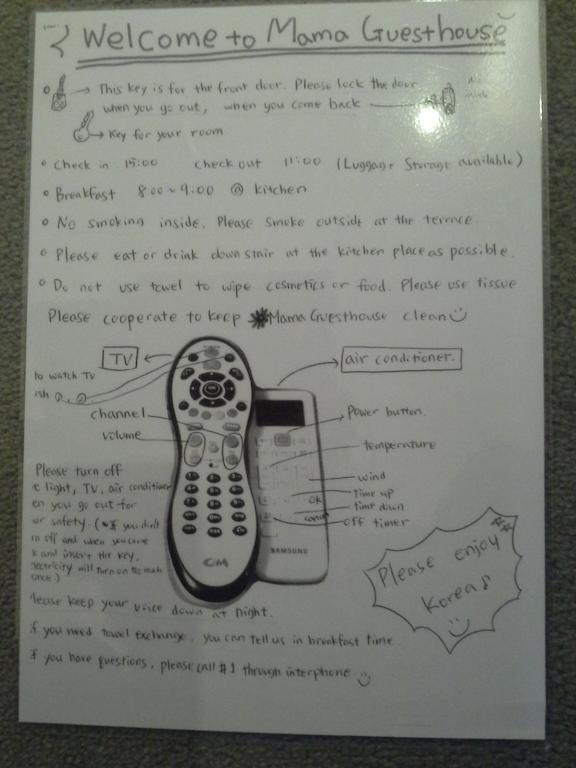 Welcome to Mama Guesthouse
This key is for the front door. Please lock the door
when you go out, when you come back
Key for your room
Check in 15:00 Check out 11:00 (Luggage Storage available)
Breakfast 8:00~9:00 @ kitchen
No smoking inside. Please smoke outside at the terrace.
Please eat or drink down stair at the kitchen place as possible.
Do not use towel to wipe cosmetics or food. Please use tissue
Please cooperate to keep Mama Guesthouse clean
TV
air conditioner.
to watch TV
ish
channel
volume
Power button.
temperature
wind
time up
OK
time down
cancel
off timer
Please turn off
e light, TV, air conditioner
en you go out for
ur safety. (*If you don't
n off and when you come
k and insert the key,
lectricity will turn on too much
once)
C&M
SAMSUNG
Please enjoy
Korea♪
lease keep your voice down at night.
if you need towel exchange, you can tell us in breakfast time.
if you have questions, please call #1 through interphone